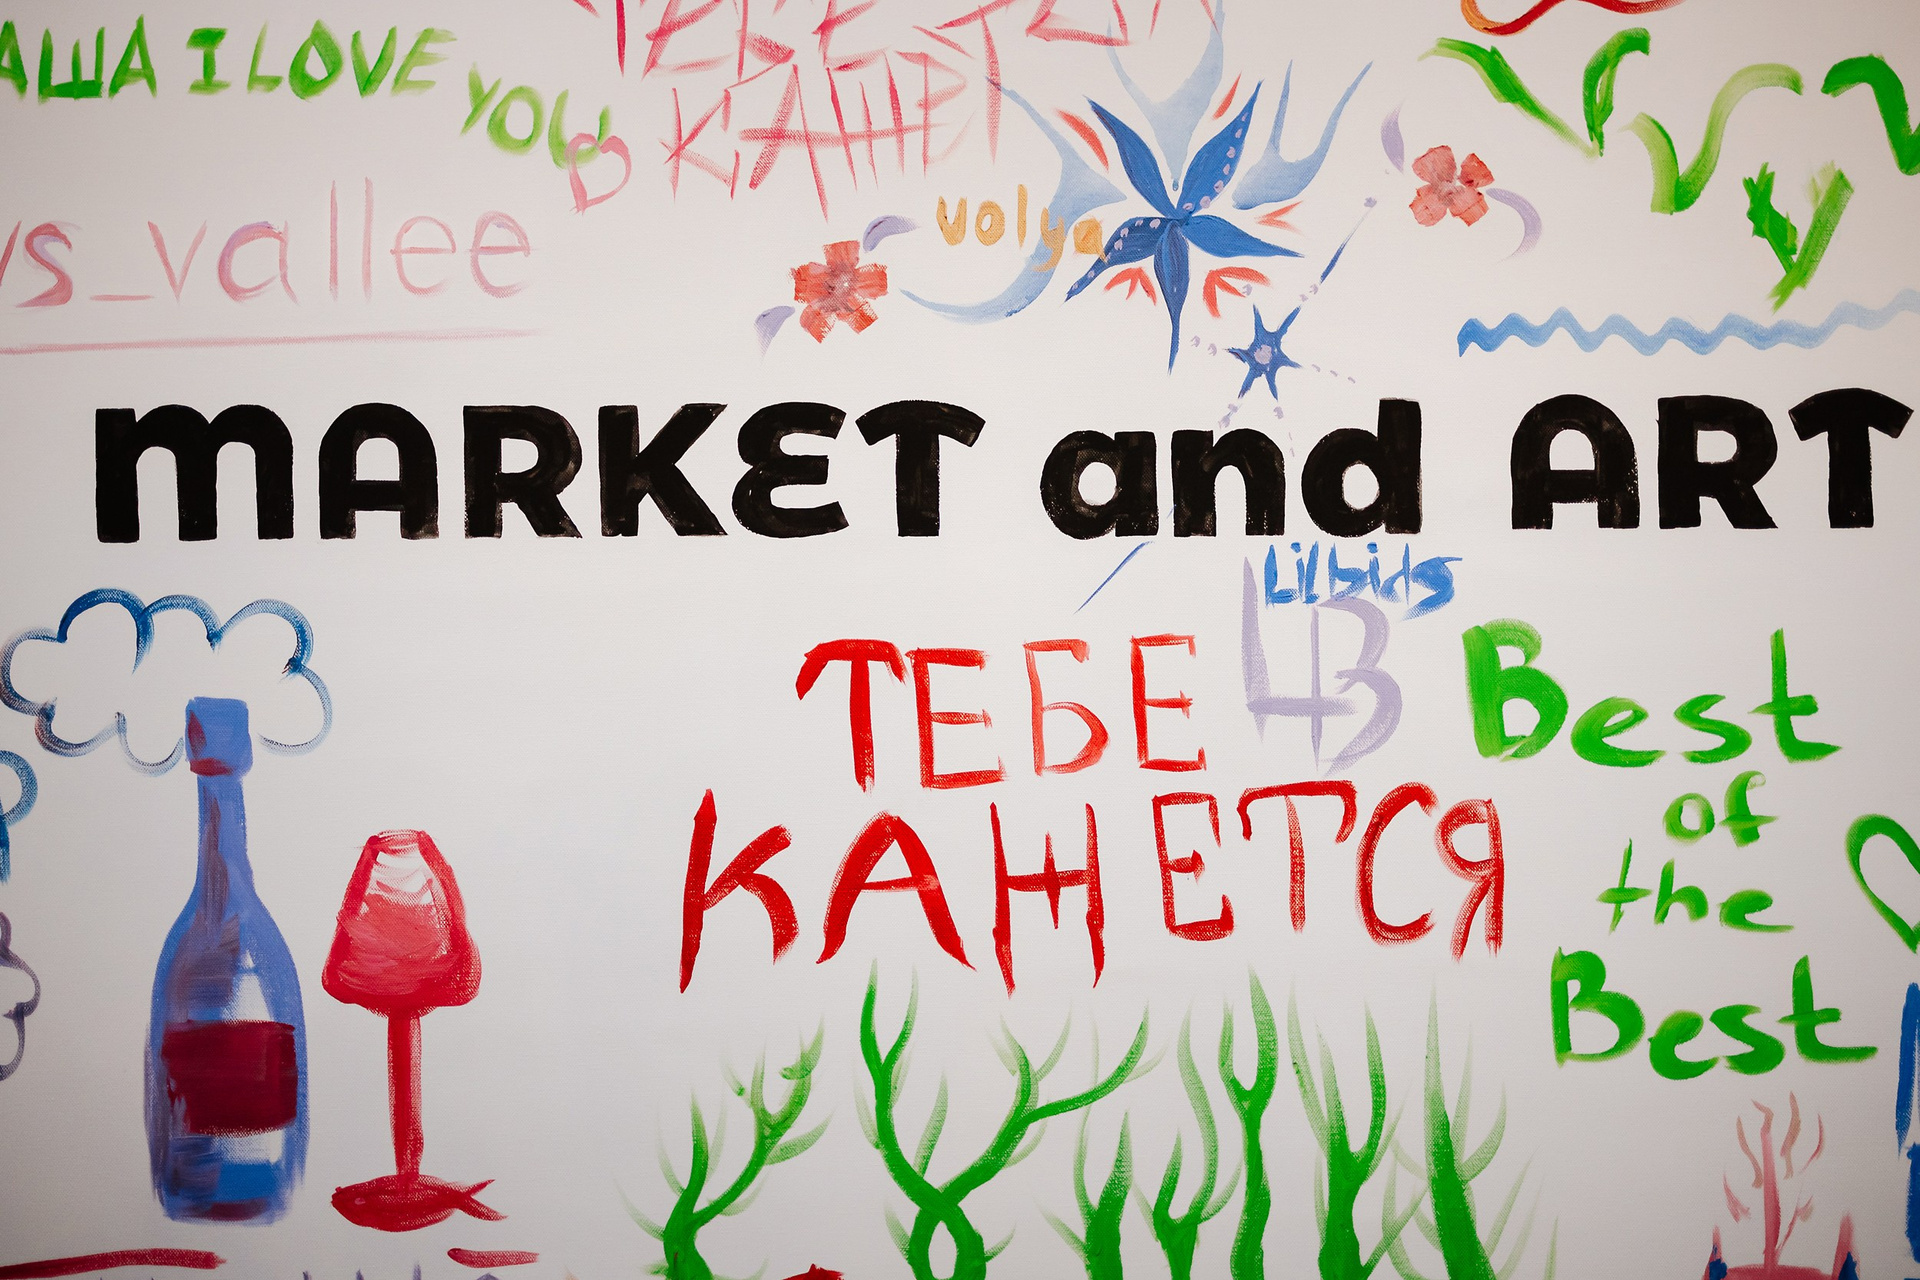 АША I LOVE YOU
ТЕБЕ
КАЖЕТ
vs_vallee
volya
MARKET and ART
Lilbids
ТЕБЕ
КАЖЕТСЯ
Best
of
the
Best